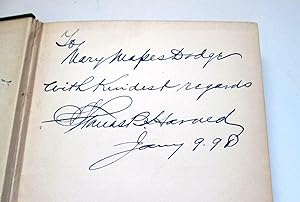 To
Mary Mapes Dodge
With Kindest regards
Thomas B. Harned
Jany 9.98